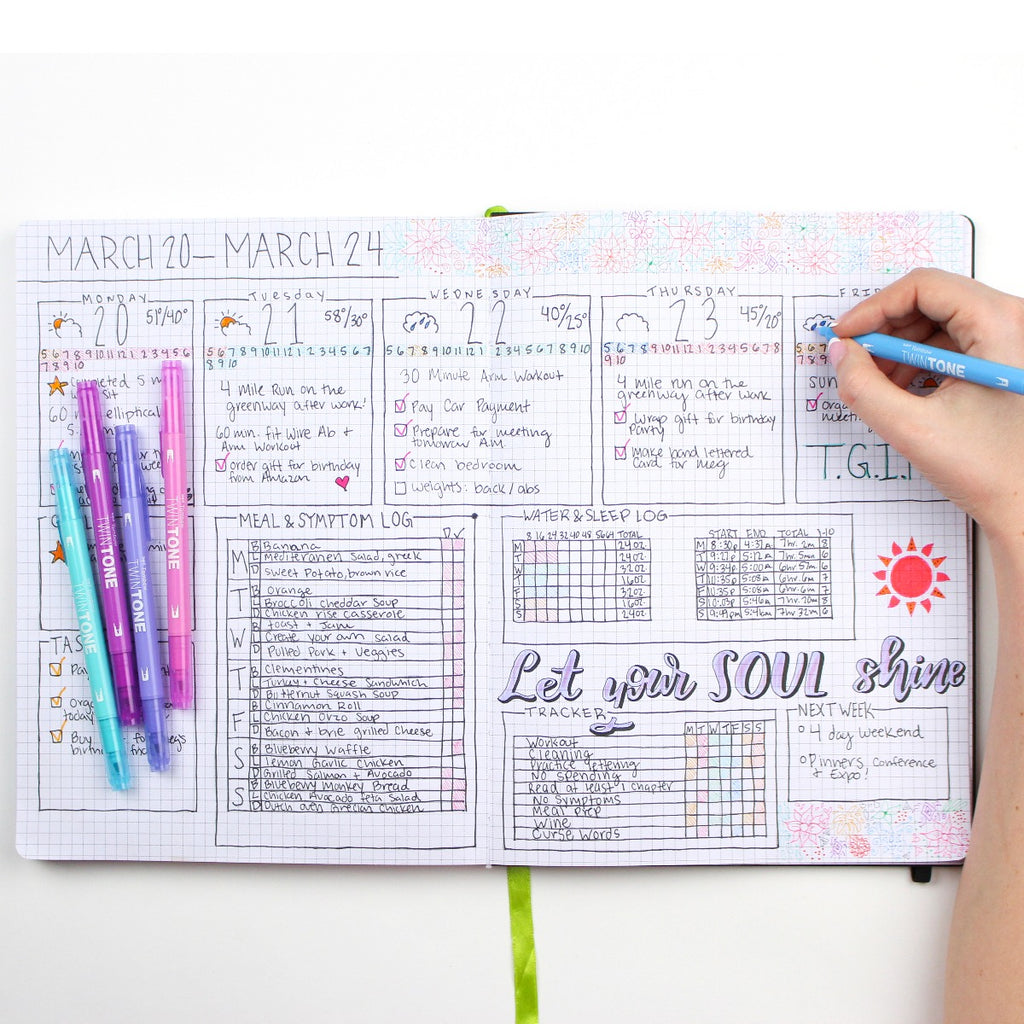 MARCH 20 – MARCH 24
MONDAY
20
51°/40°
5 6 7 8 9 10 11 12 1 2 3 4 5 6
7 8 9 10
Completed 5 m
Sit
60 min elliptical
Tuesday
21
58°/30°
5 6 7 8 9 10 11 12 1 2 3 4 5 6 7
8 9 10
4 Mile Run on the
greenway after work!
60 min. fit Wire Ab +
Arm Workout
order gift for birthday
from Amazon
WEDNESDAY
22
40°/25°
5 6 7 8 9 10 11 12 1 2 3 4 5 6 7 8 9 10
30 Minute Arm Workout
Pay Car Payment
Prepare for meeting
tomorrow AM
Clean bedroom
Weights: back/abs
THURSDAY
23
45°/20°
5 6 7 8 9 10 11 12 1 2 3 4 5 6 7 8
9 10
4 mile run on the
greenway after work
Wrap gift for birthday
Party
Make hand lettered
Card for Meg
FRI
5 6
7 8 9
SUN
T.G.I.
TWINTONE
TWINTONE
TWINTONE
TWINTONE
TWINTONE
TAS
Pay
today
Buy
MEAL & SYMPTOM LOG
D ✓
M
B Banana
L Mediterranen Salad, greek
D Sweet Potato, brown rice
T
B Orange
L Broccoli cheddar Soup
D Chicken rise casserole
W
B Toast + Jam
L Create your own salad
D Pulled Pork + Veggies
T
B Clementines
L Turkey + Cheese Sandwhich
D Butternut Squash Soup
F
B Cinnamon Roll
L Chicken Orzo Soup
D Bacon + brie grilled Cheese
S
B Blueberry Waffle
L Lemon Garlic Chicken
D Grilled Salmon + Avocado
S
B Blueberry Monkey Bread
L Chicken Avocado feta Salad
D Dutch Oven Grecian Chicken
WATER & SLEEP LOG
8 16 24 32 40 48 56 64 TOTAL
M 24oz.
T 24oz.
W 32oz.
T 16oz.
F 32oz.
S 16oz.
S 24oz
START END TOTAL 1-10
M 8:30p 4:37a 7hr. 2m 8
T 9:27p 5:12a 7hr. 5m 6
W 9:34p 5:00a 6hr 57m 6
T 10:35p 5:08a 6hr 6m 7
F 10:35p 5:08a 6hr 6m 7
S 10:03p 5:46a 7hr 20m 8
S 9:49p 5:46a 7hr 32m 6
Let your SOUL shine
TRACKER
M T W T F S S
Workout
Cleaning
Practice lettering
No Spending
Read at least 1 chapter
No Symptoms
Meal Prep
Wine
Curse Words
NEXT WEEK
4 day weekend
Pinners Conference
+ Expo!